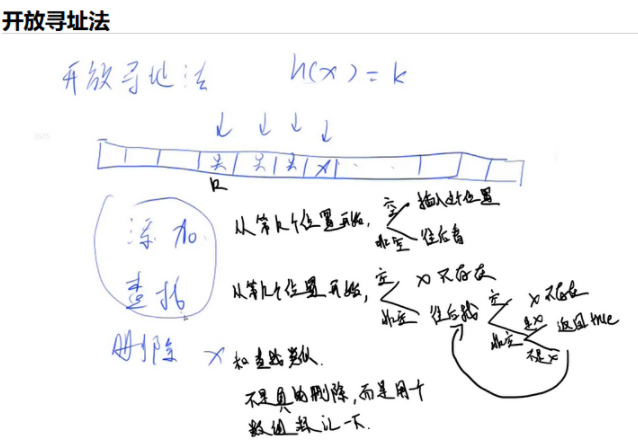 开放寻址法
开放寻址法 h(x) = k
k
添加 从第k个位置开始, 空 插入此位置
非空 往后看
查找 从第k个位置开始, 空 x不存在
非空 往后找 空 x不存在
非空 是x 返回true
不是x
删除 x 和查找类似.
不是真的删除, 而是用个
数组标记一下.